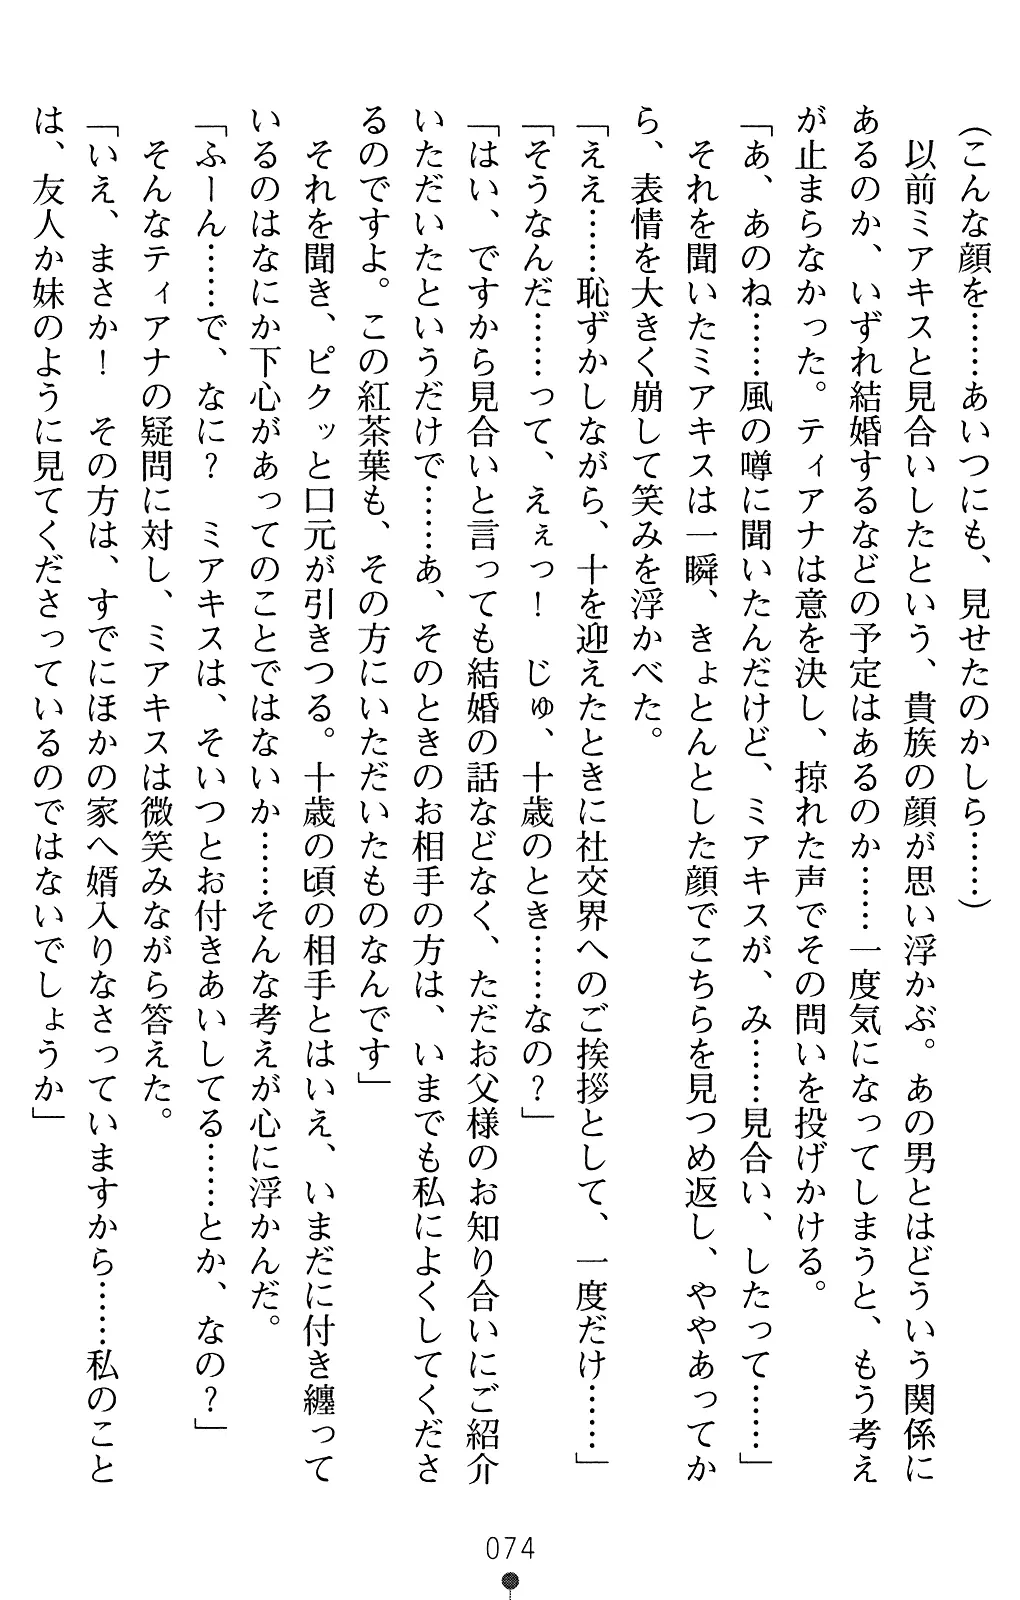 （こんな顔を……あいつにも、見せたのかしら……）
　以前ミアキスと見合いしたという、貴族の顔が思い浮かぶ。あの男とはどういう関係に
あるのか、いずれ結婚するなどの予定はあるのか……一度気になってしまうと、もう考え
が止まらなかった。ティアナは意を決し、掠れた声でその問いを投げかける。
「あ、あのね……風の噂に聞いたんだけど、ミアキスが、み……見合い、したって……」
　それを聞いたミアキスは一瞬、きょとんとした顔でこちらを見つめ返し、ややあってか
ら、表情を大きく崩して笑みを浮かべた。
「ええ……恥ずかしながら、十を迎えたときに社交界へのご挨拶として、一度だけ……」
「そうなんだ……って、えぇっ！　じゅ、十歳のとき……なの？」
「はい、ですから見合いと言っても結婚の話などなく、ただお父様のお知り合いにご紹介
いただいたというだけで……あ、そのときのお相手の方は、いまでも私によくしてくださ
るのですよ。この紅茶葉も、その方にいただいたものなんです」
　それを聞き、ピクッと口元が引きつる。十歳の頃の相手とはいえ、いまだに付き纏って
いるのはなにか下心があってのことではないか……そんな考えが心に浮かんだ。
「ふーん……で、なに？　ミアキスは、そいつとお付きあいしてる……とか、なの？」
　そんなティアナの疑問に対し、ミアキスは微笑みながら答えた。
「いえ、まさか！　その方は、すでにほかの家へ婿入りなさっていますから……私のこと
は、友人か妹のように見てくださっているのではないでしょうか」
074